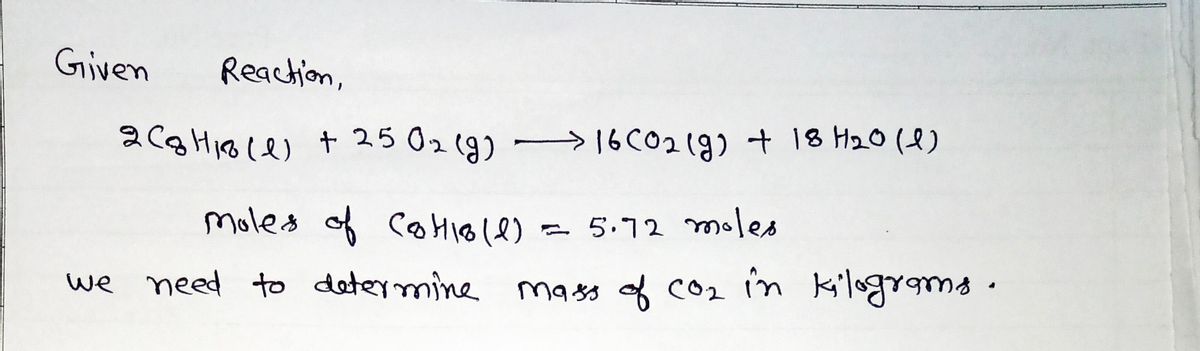 Given Reaction,
2C8H18(l) + 25 O2(g) → 16CO2(g) + 18 H2O(l)
moles of C8H18(l) = 5.72 moles
we need to determine mass of CO2 in kilograms.